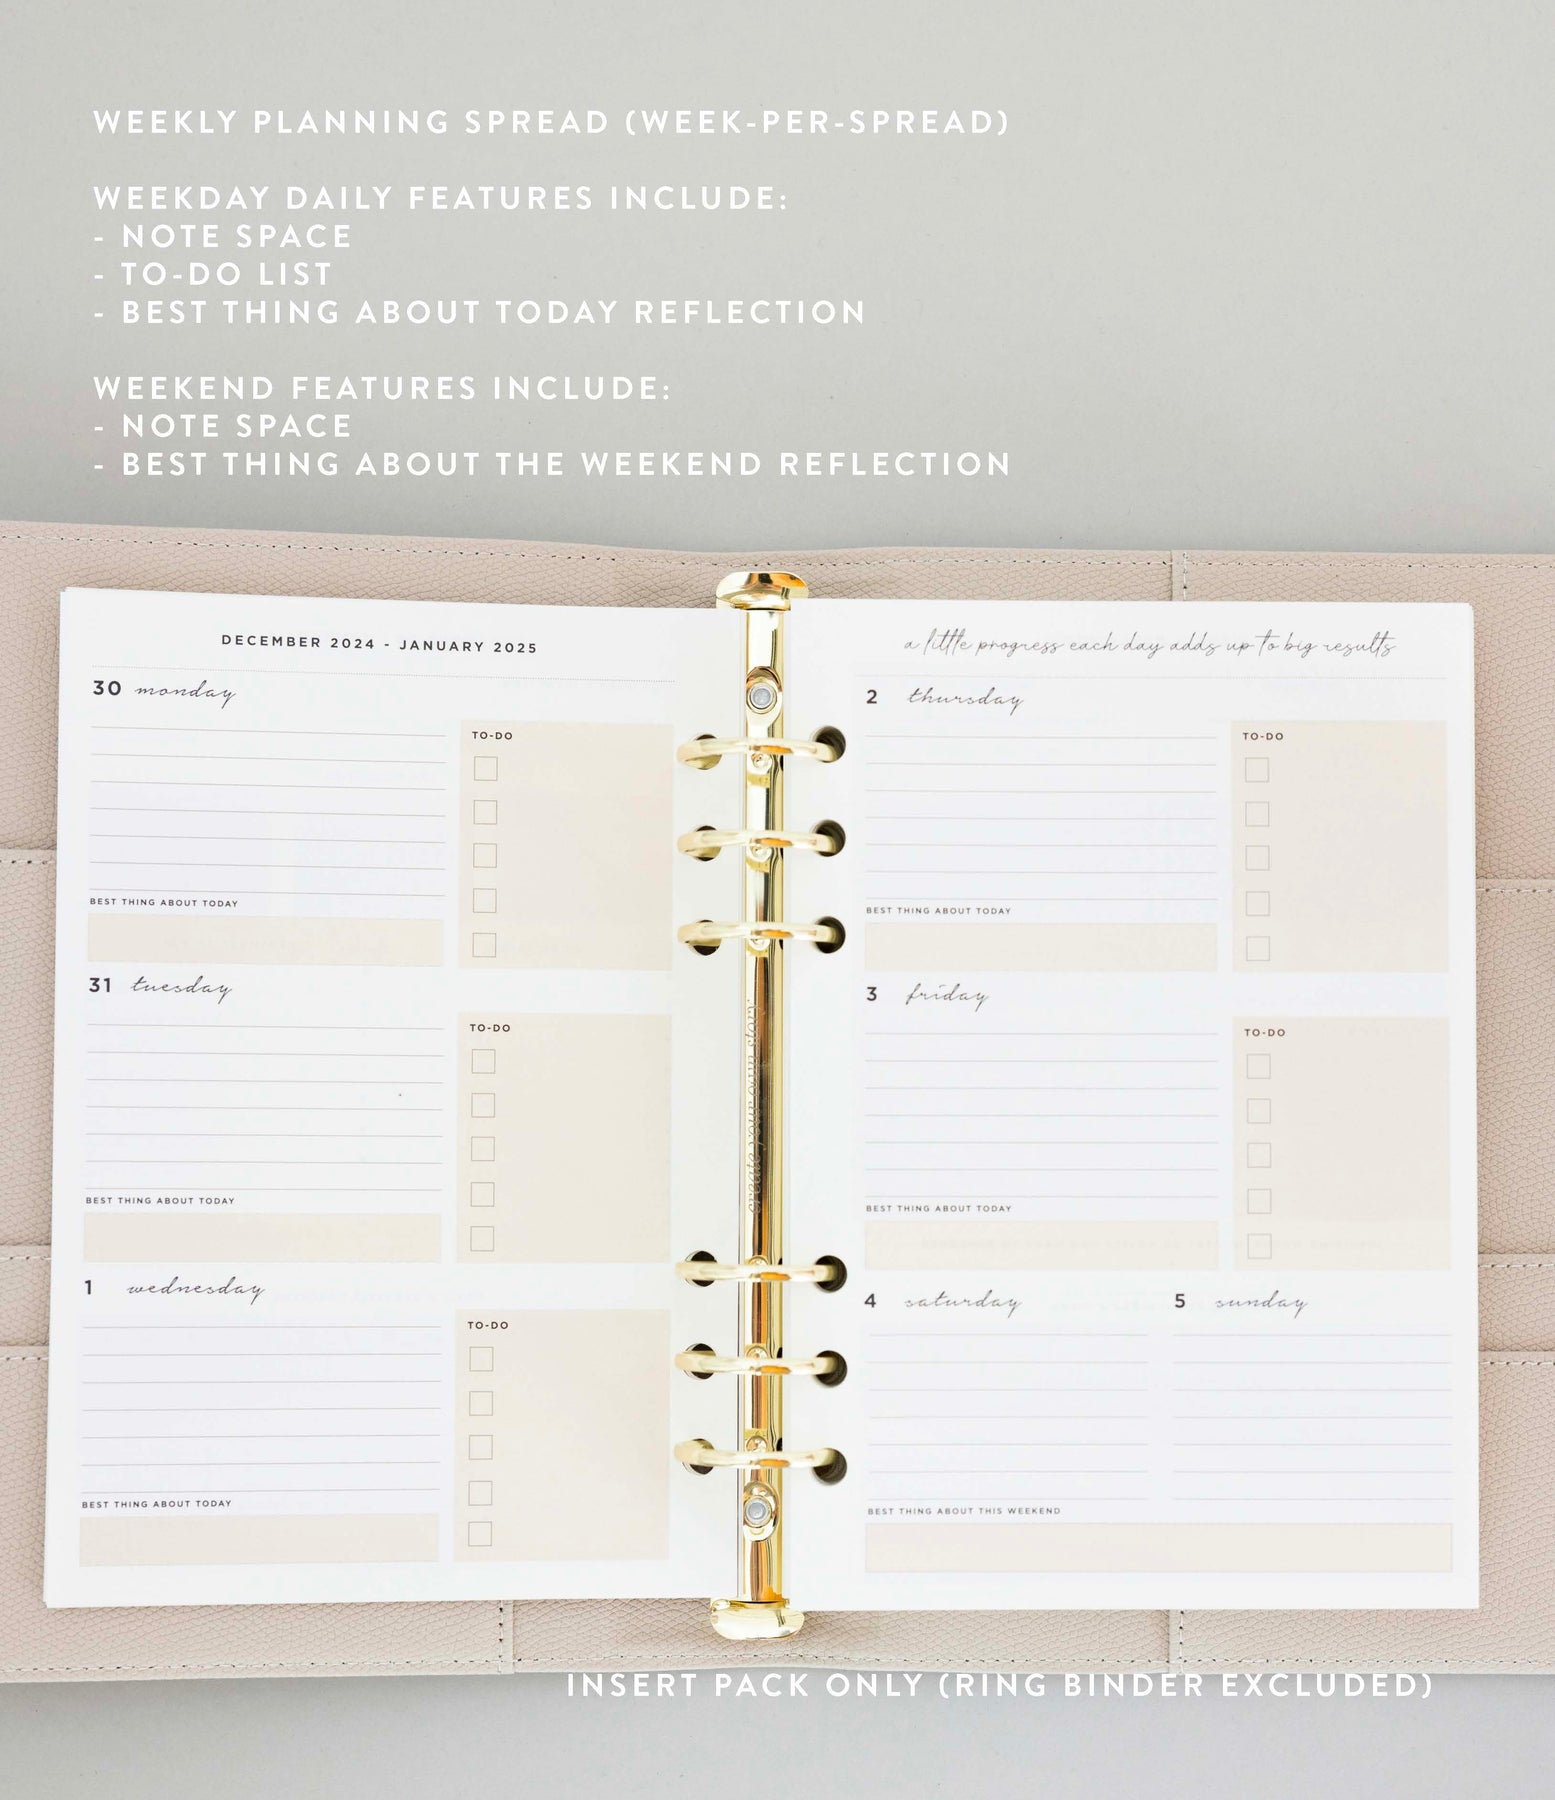 WEEKLY PLANNING SPREAD (WEEK-PER-SPREAD)
WEEKDAY DAILY FEATURES INCLUDE:
- NOTE SPACE
- TO-DO LIST
- BEST THING ABOUT TODAY REFLECTION
WEEKEND FEATURES INCLUDE:
- NOTE SPACE
- BEST THING ABOUT THE WEEKEND REFLECTION
DECEMBER 2024 - JANUARY 2025
30 monday
TO-DO
BEST THING ABOUT TODAY
31 tuesday
TO-DO
BEST THING ABOUT TODAY
1 wednesday
TO-DO
BEST THING ABOUT TODAY
create your own story
a little progress each day adds up to big results
2 thursday
TO-DO
BEST THING ABOUT TODAY
3 friday
TO-DO
BEST THING ABOUT TODAY
4 saturday
5 sunday
BEST THING ABOUT THIS WEEKEND
INSERT PACK ONLY (RING BINDER EXCLUDED)